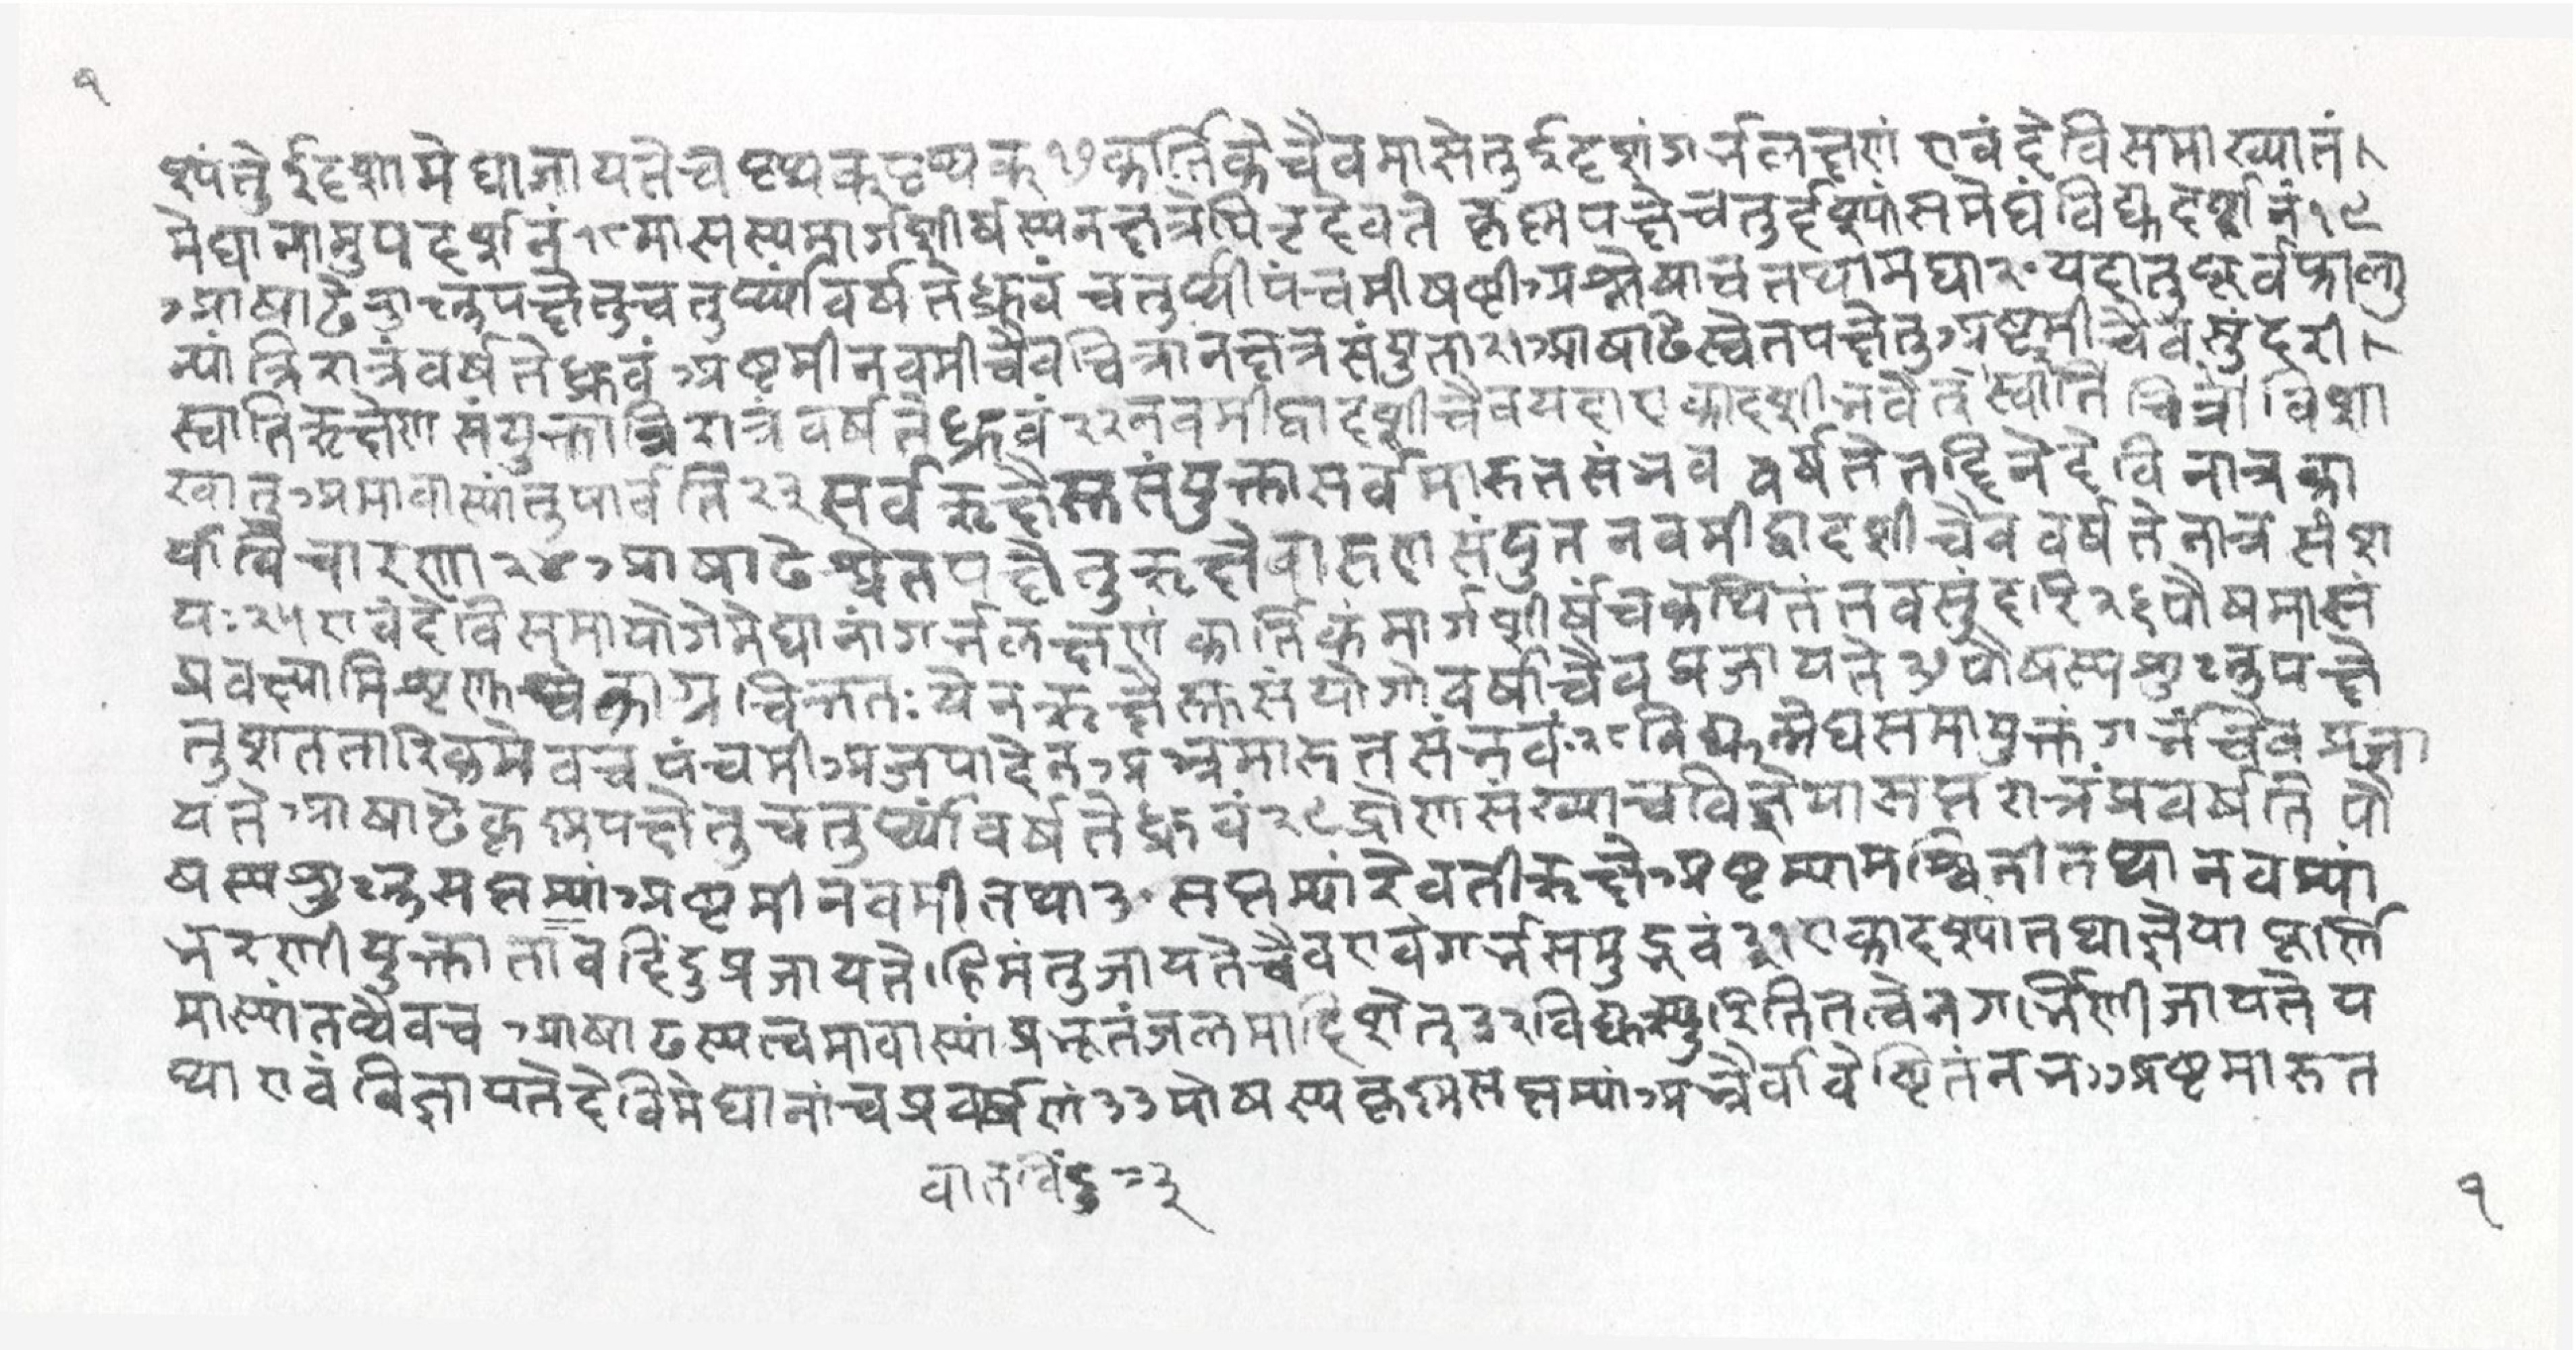 १
श्यंते ईदृशा मेघा जायते च पृथक् पृथक् १७ कार्तिके चैव मासे तु ईदृशं गर्भलक्षणं एवं देवि समाख्यातं ।
मेघानामुपदर्शनं १८ मासस्य मार्गशीर्षस्य नक्षत्रे पितृदेवते कृष्णपक्षे चतुर्दश्यां समेघं विद्युदर्शनं १९
आषाढे शुक्लपक्षे तु चतुर्थ्यां वर्षते ध्रुवं चतुर्थी पंचमी षष्टी अश्लेषा च तथा मघा २० यदा तु पूर्वफाल्गु
न्यां त्रिरात्रं वर्षते ध्रुवं अष्टमी नवमी चैव चित्रा नक्षत्र संयुता २१ आषाढे स्वेतपक्षे तु अष्टमी चैव सुंदरी ।
स्वाति ऋक्षेण संयुक्ता त्रिरात्रं वर्षते ध्रुवं २२ नवमी द्वादशी चैव यदा एकादशी भवेत् स्वाति चित्रा विशा
खा तु अमावास्यां तु पार्वति २३ सर्व ऋक्षैस्तु संयुक्ता सर्व मारुत संभव वर्षते तद्दिने देवि नात्र का
र्या त्वैचारणा २४ आषाढे श्वेतपक्षे तु ऋक्षे वारुण संयुत नवमी द्वादशी चैव वर्षते नात्र संश
यः २५ एवं देवि समायोगे मेघानां गर्भलक्षणं कार्तिकं मार्गशीर्षं च कथितं तव सुंदरि २६ पौष मासं
प्रवक्ष्यामि शृणुष्वेकाग्र चित्ततः येन ऋक्षैस्तु संयोगो वर्षा चैव प्रजायते २७ पौषस्य शुक्लपक्षे
तु शततारिकमेव च पंचमी अजपादेन अभ्रमारुत संभवं २८ विद्युन्मेघ समायुक्तं गर्भं चैव प्रजा
यते आषाढे कृष्णपक्षे तु चतुर्थ्यां वर्षते ध्रुवं २९ द्रोण संख्या च विज्ञेया सप्तरात्रं प्रवर्षति पौ
षस्य शुक्ल सप्तम्यां अष्टमी नवमी तथा ३० सप्तम्यां रेवती ऋक्षे अष्टम्यामश्विनी तथा नवम्यां
भरणी युक्ता तावद्दिंदु प्रजायते । हिमं तु जायते चैव एवं गर्भसमुद्भवं ३१ एकादश्यां तथा ज्ञेया पूर्णि
मास्यां तथैव च आषाढस्य त्वमावास्यां प्रभूतं जलमादिशेत् ३२ विद्युत्स्फुरिति तत्वेन गर्भिणी जायते य
था एवं विज्ञायते देवि मेघानां च प्रवर्षणं ३३ पौषस्य कृष्णसप्तम्यां अभ्रैर्वा वेष्टितं नभः अष्टमारुत
वातविंदु ३
१